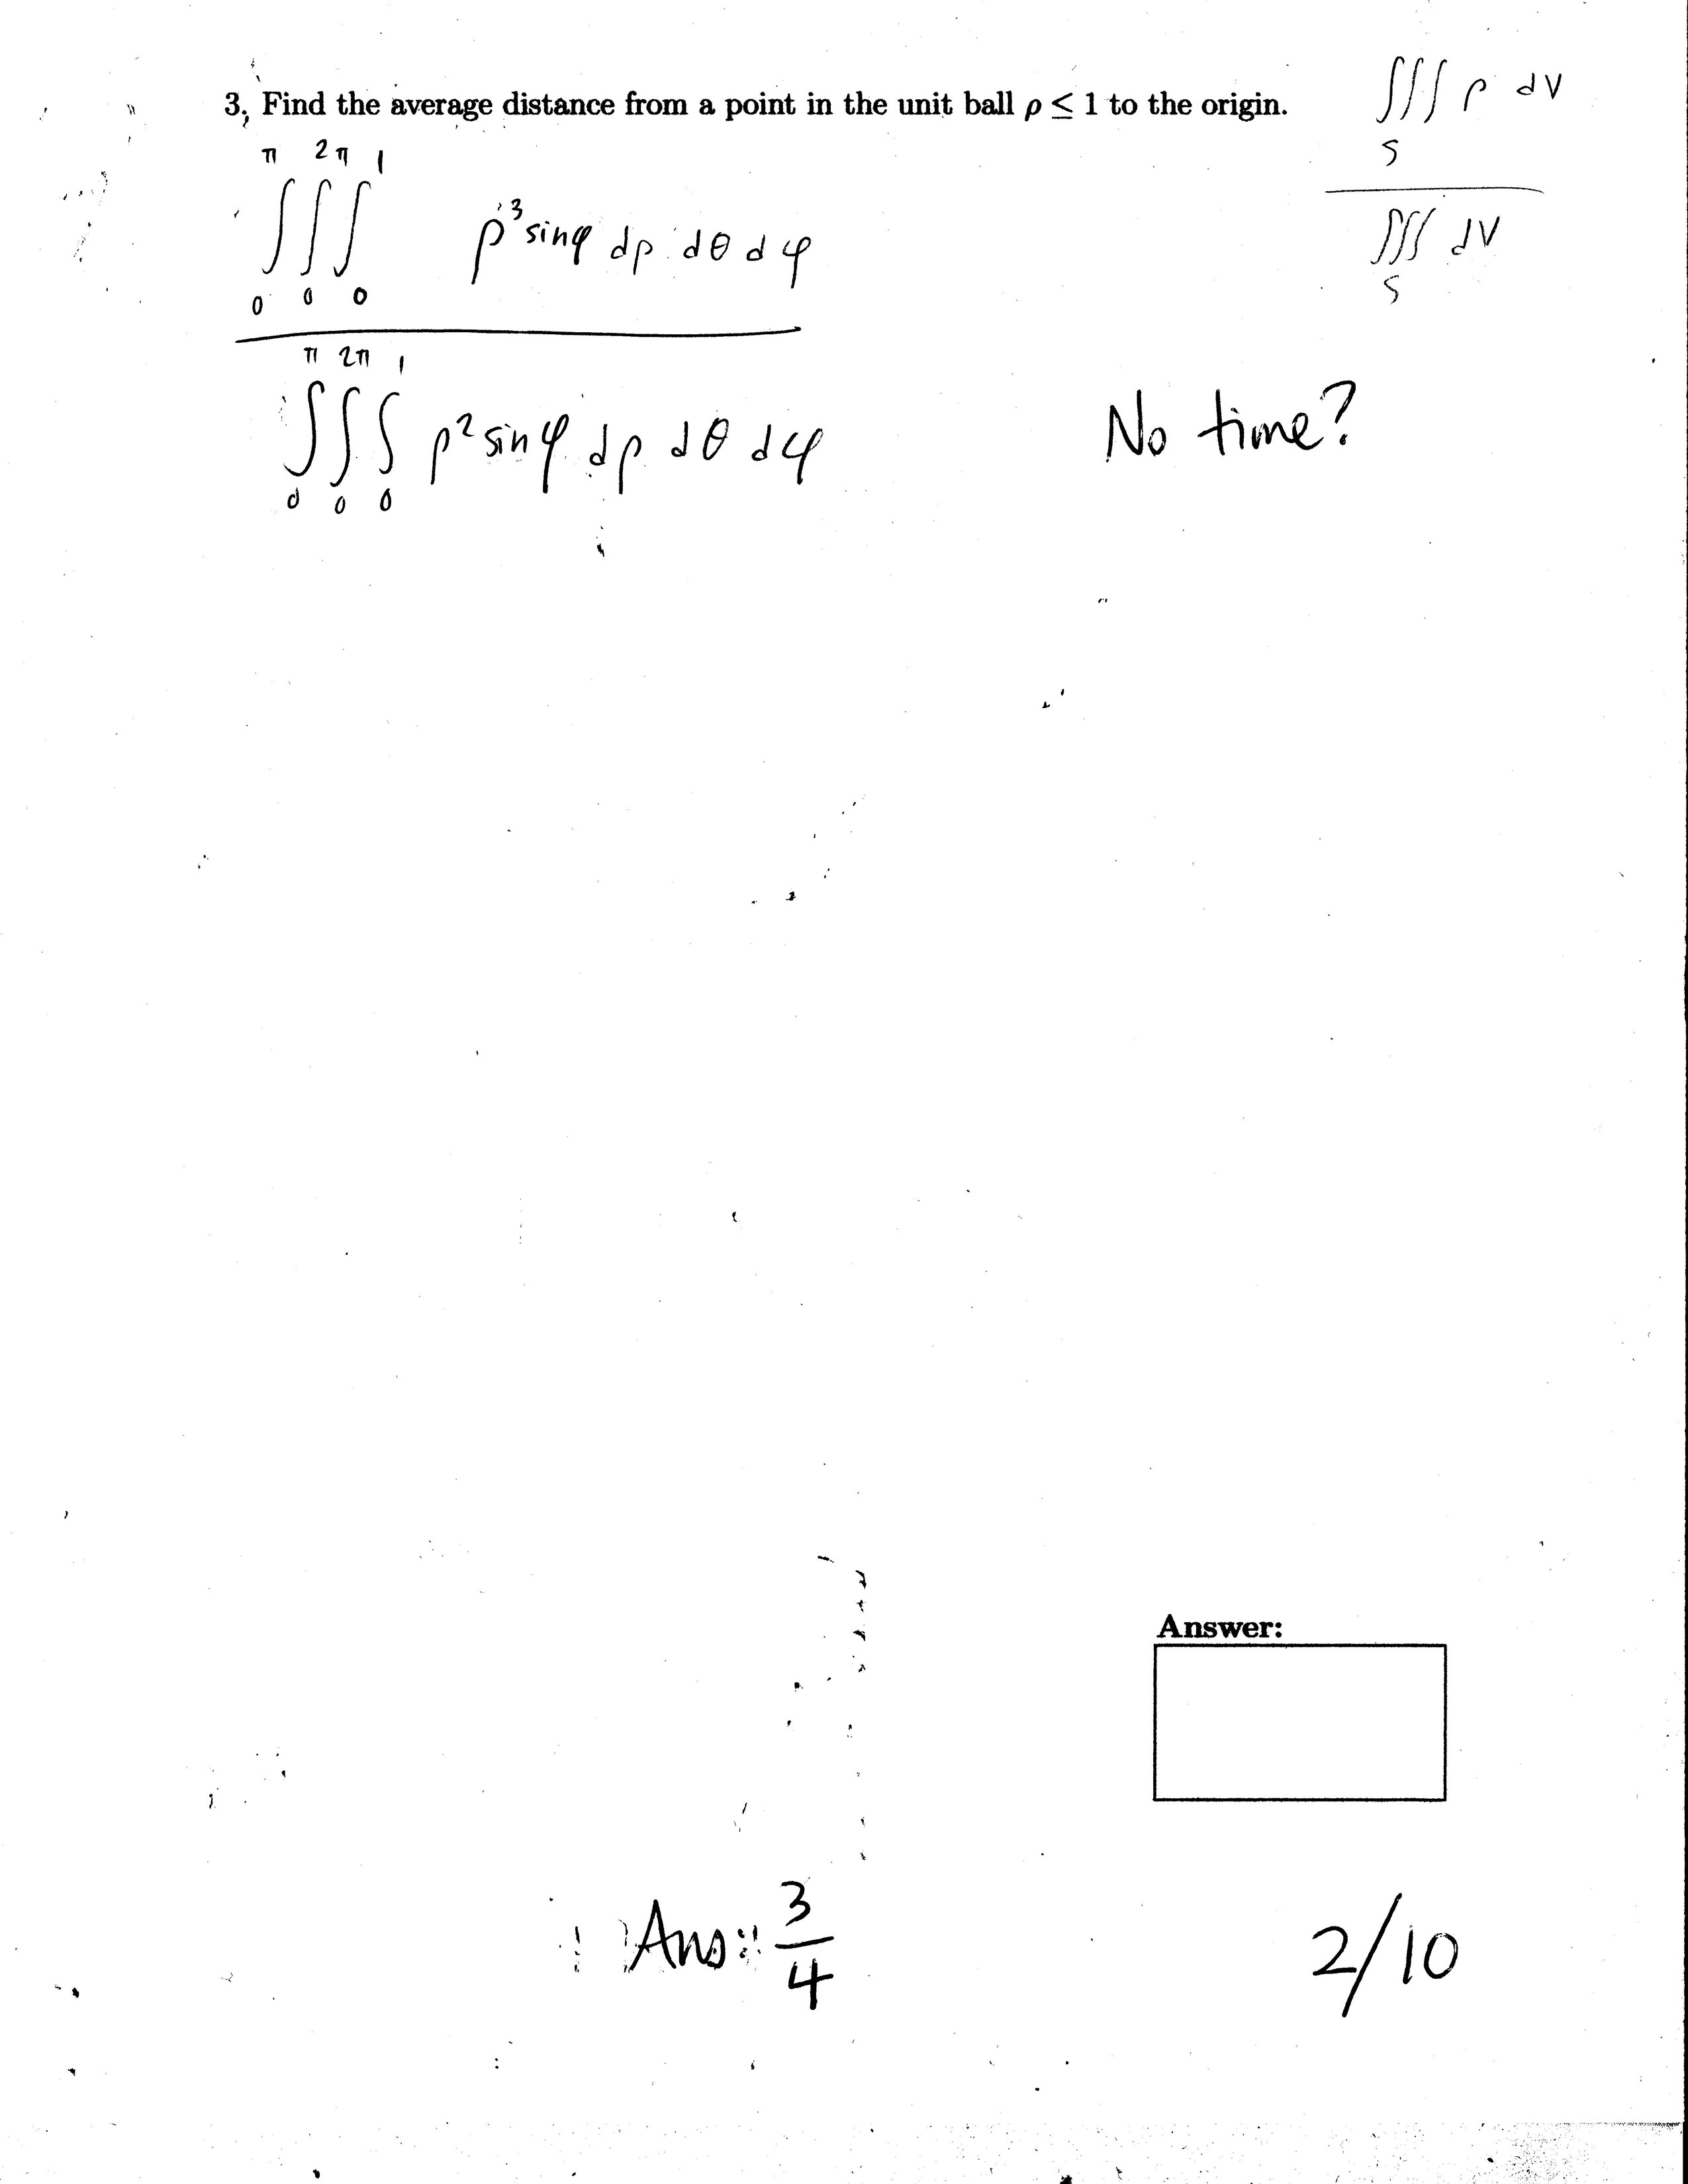 3. Find the average distance from a point in the unit ball ρ ≤ 1 to the origin.
∫∫∫ ρ dV
S
∫∫∫ dV
S
π 2π 1
∫∫∫ ρ³ sinφ dρ dθ dφ
0 0 0
π 2π 1
∫∫∫ ρ² sinφ dρ dθ dφ
0 0 0
No time?
Answer:
Ans: 3/4
2/10